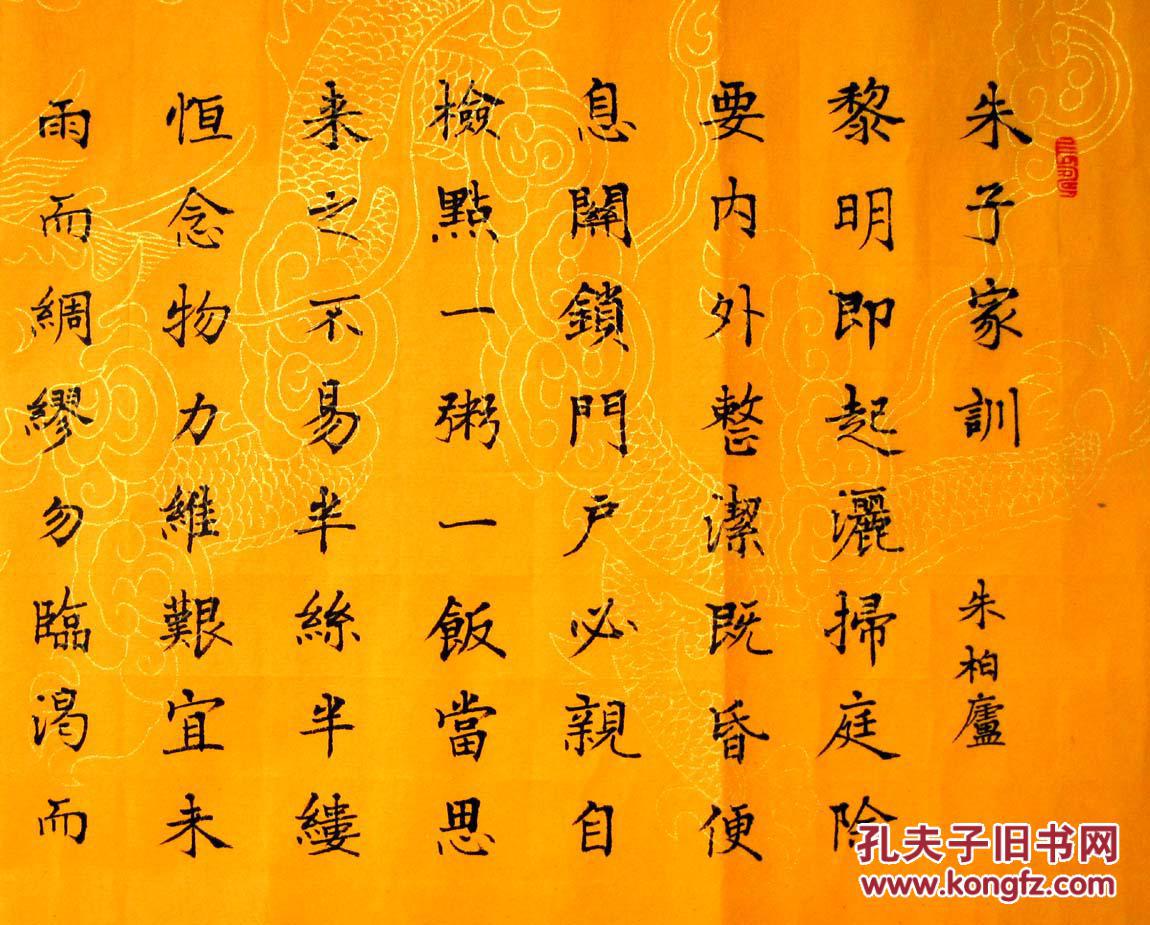 朱子家訓 朱柏廬
黎明即起灑掃庭除
要内外整潔既昏便
息關鎖門戶必親自
檢點一粥一飯當思
来之不易半絲半縷
恒念物力維艱宜未
雨而綢繆勿臨渴而
孔夫子旧书网
www.kongfz.com